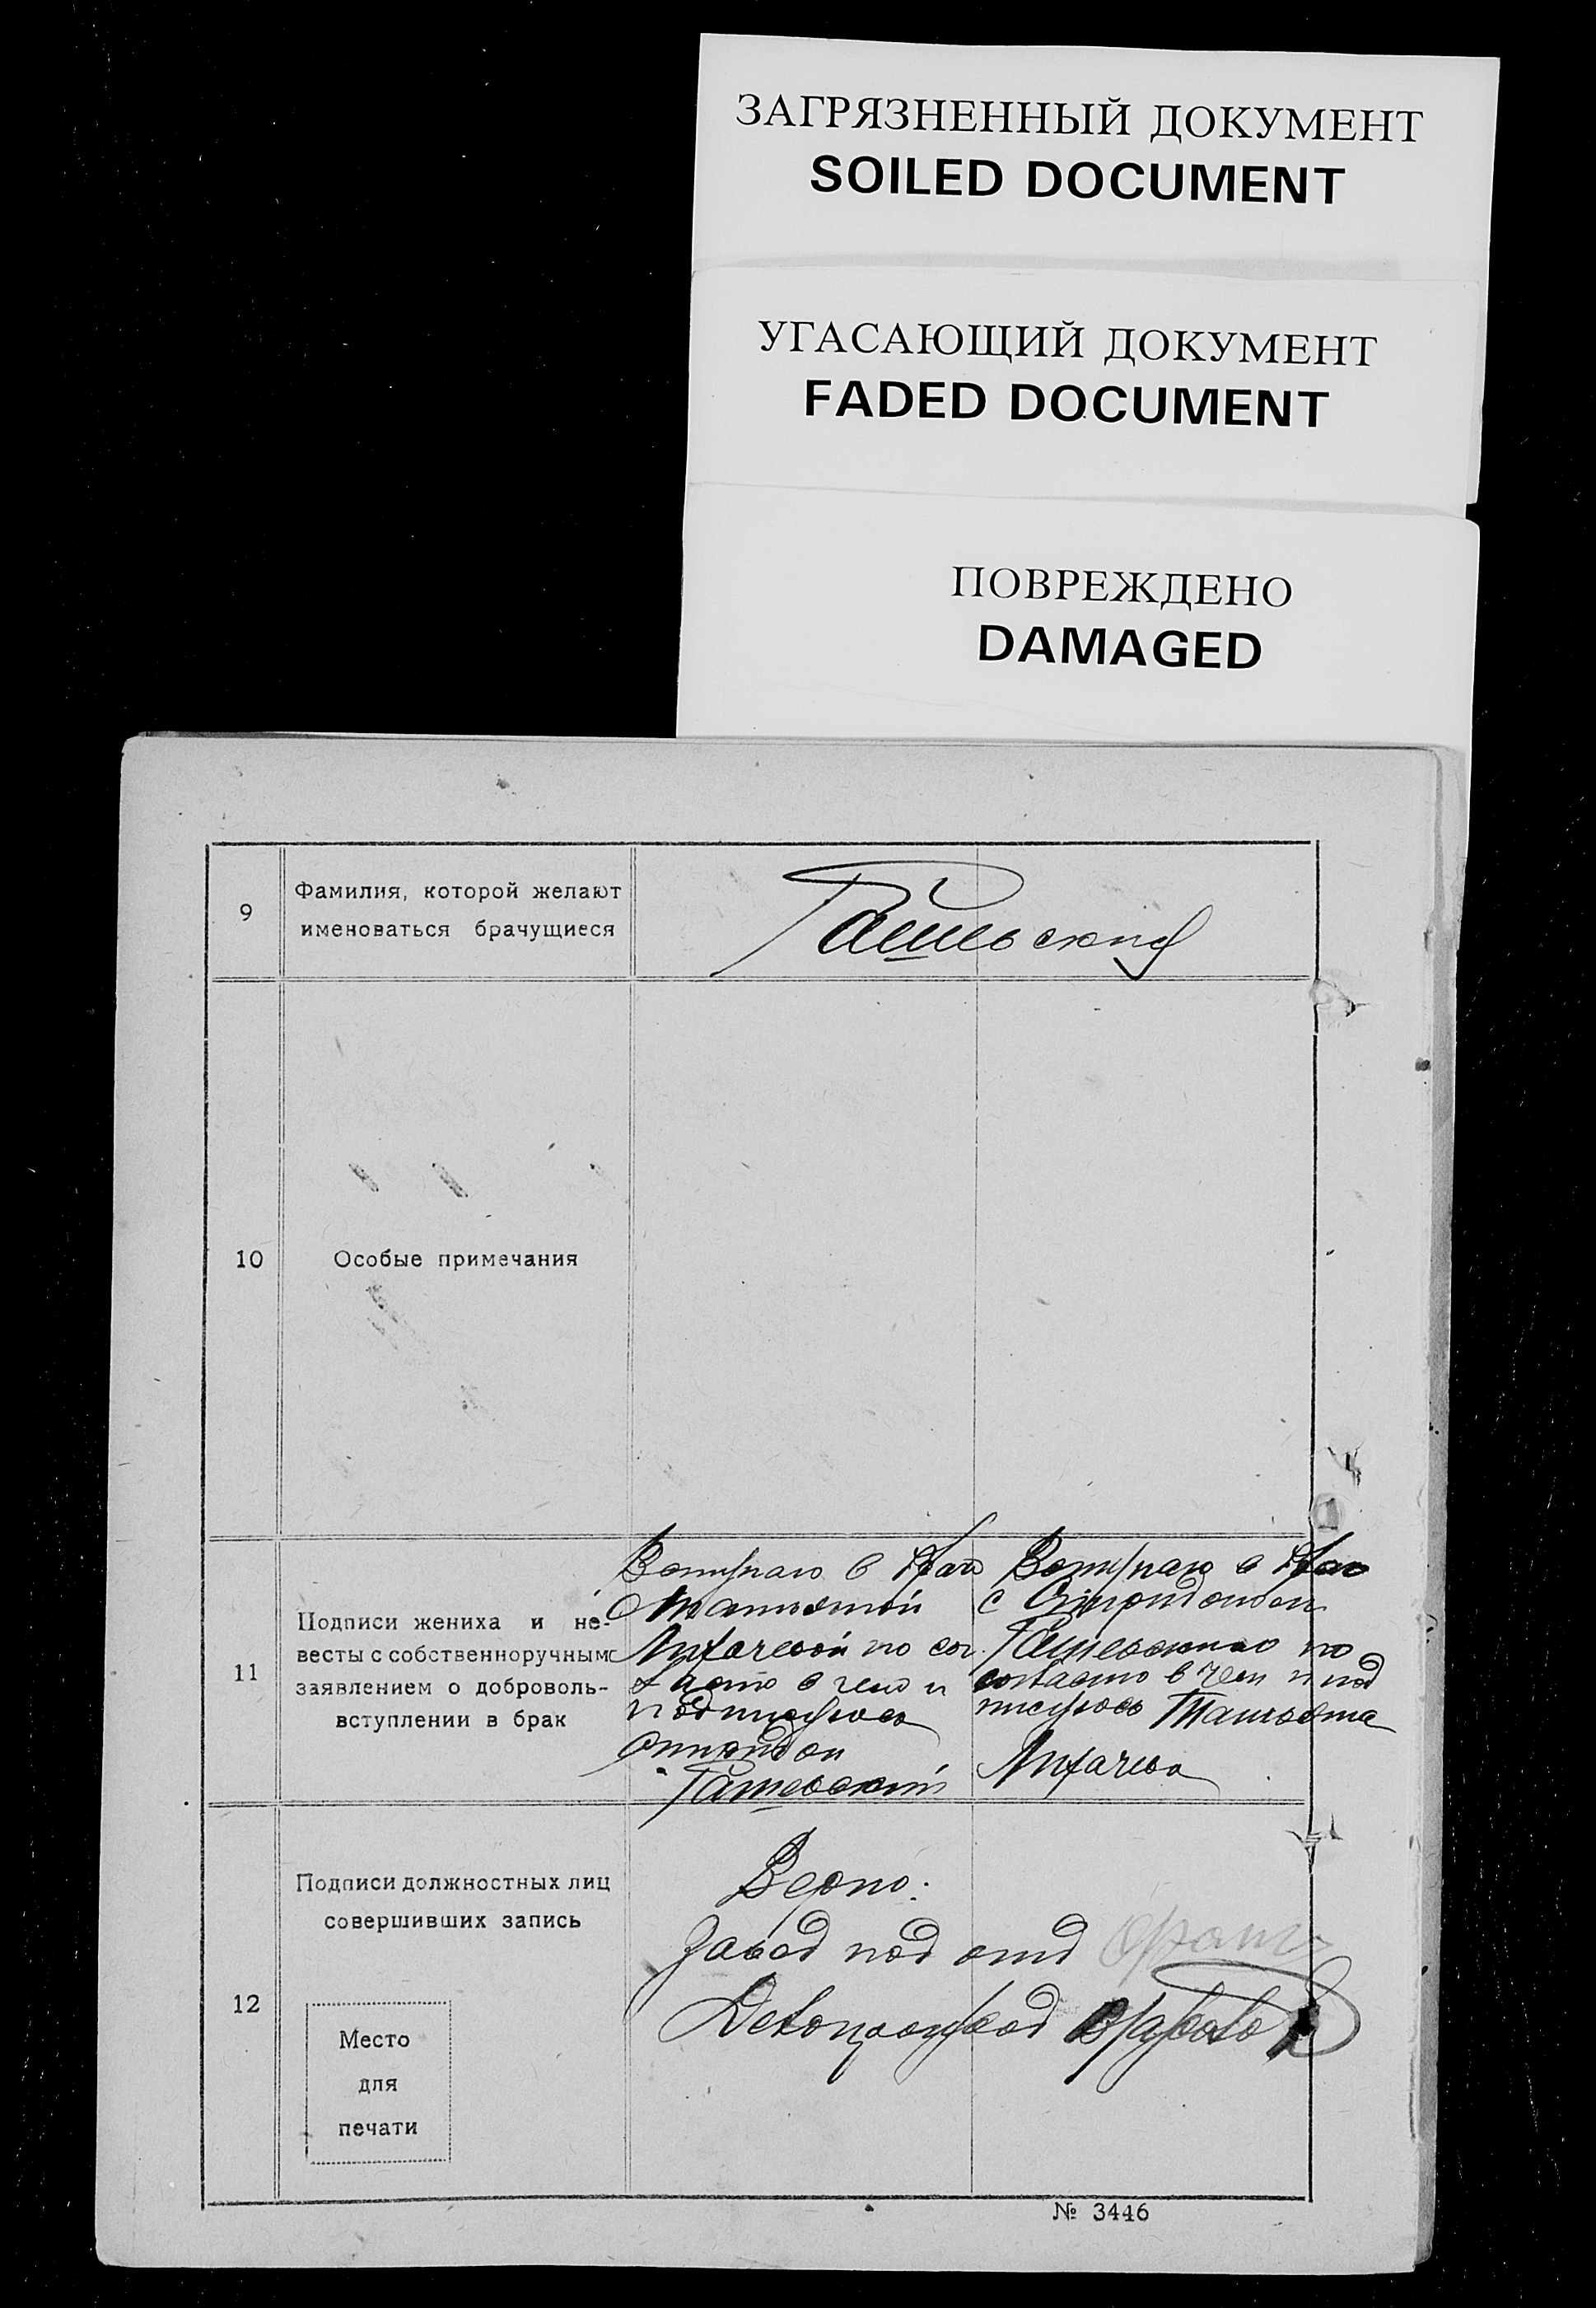 ЗАГРЯЗНЕННЫЙ ДОКУМЕНТ
SOILED DOCUMENT
УГАСАЮЩИЙ ДОКУМЕНТ
FADED DOCUMENT
ПОВРЕЖДЕНО
DAMAGED
9
Фамилия, которой желают
именоваться брачущиеся
10
Особые примечания
11
Подписи жениха и не-
весты с собственноручным
заявлением о доброволь-
вступлении в брак
Вступаю в брак
Лихачевой по сог.
в чем и
подписуюсь
Вступаю в брак
с
по
согласию в чем и под
писуюсь
Лихачева
12
Подписи должностных лиц
совершивших запись
Место
для
печати
Верно:
Завод под отд
Делопроизвод
№ 3446